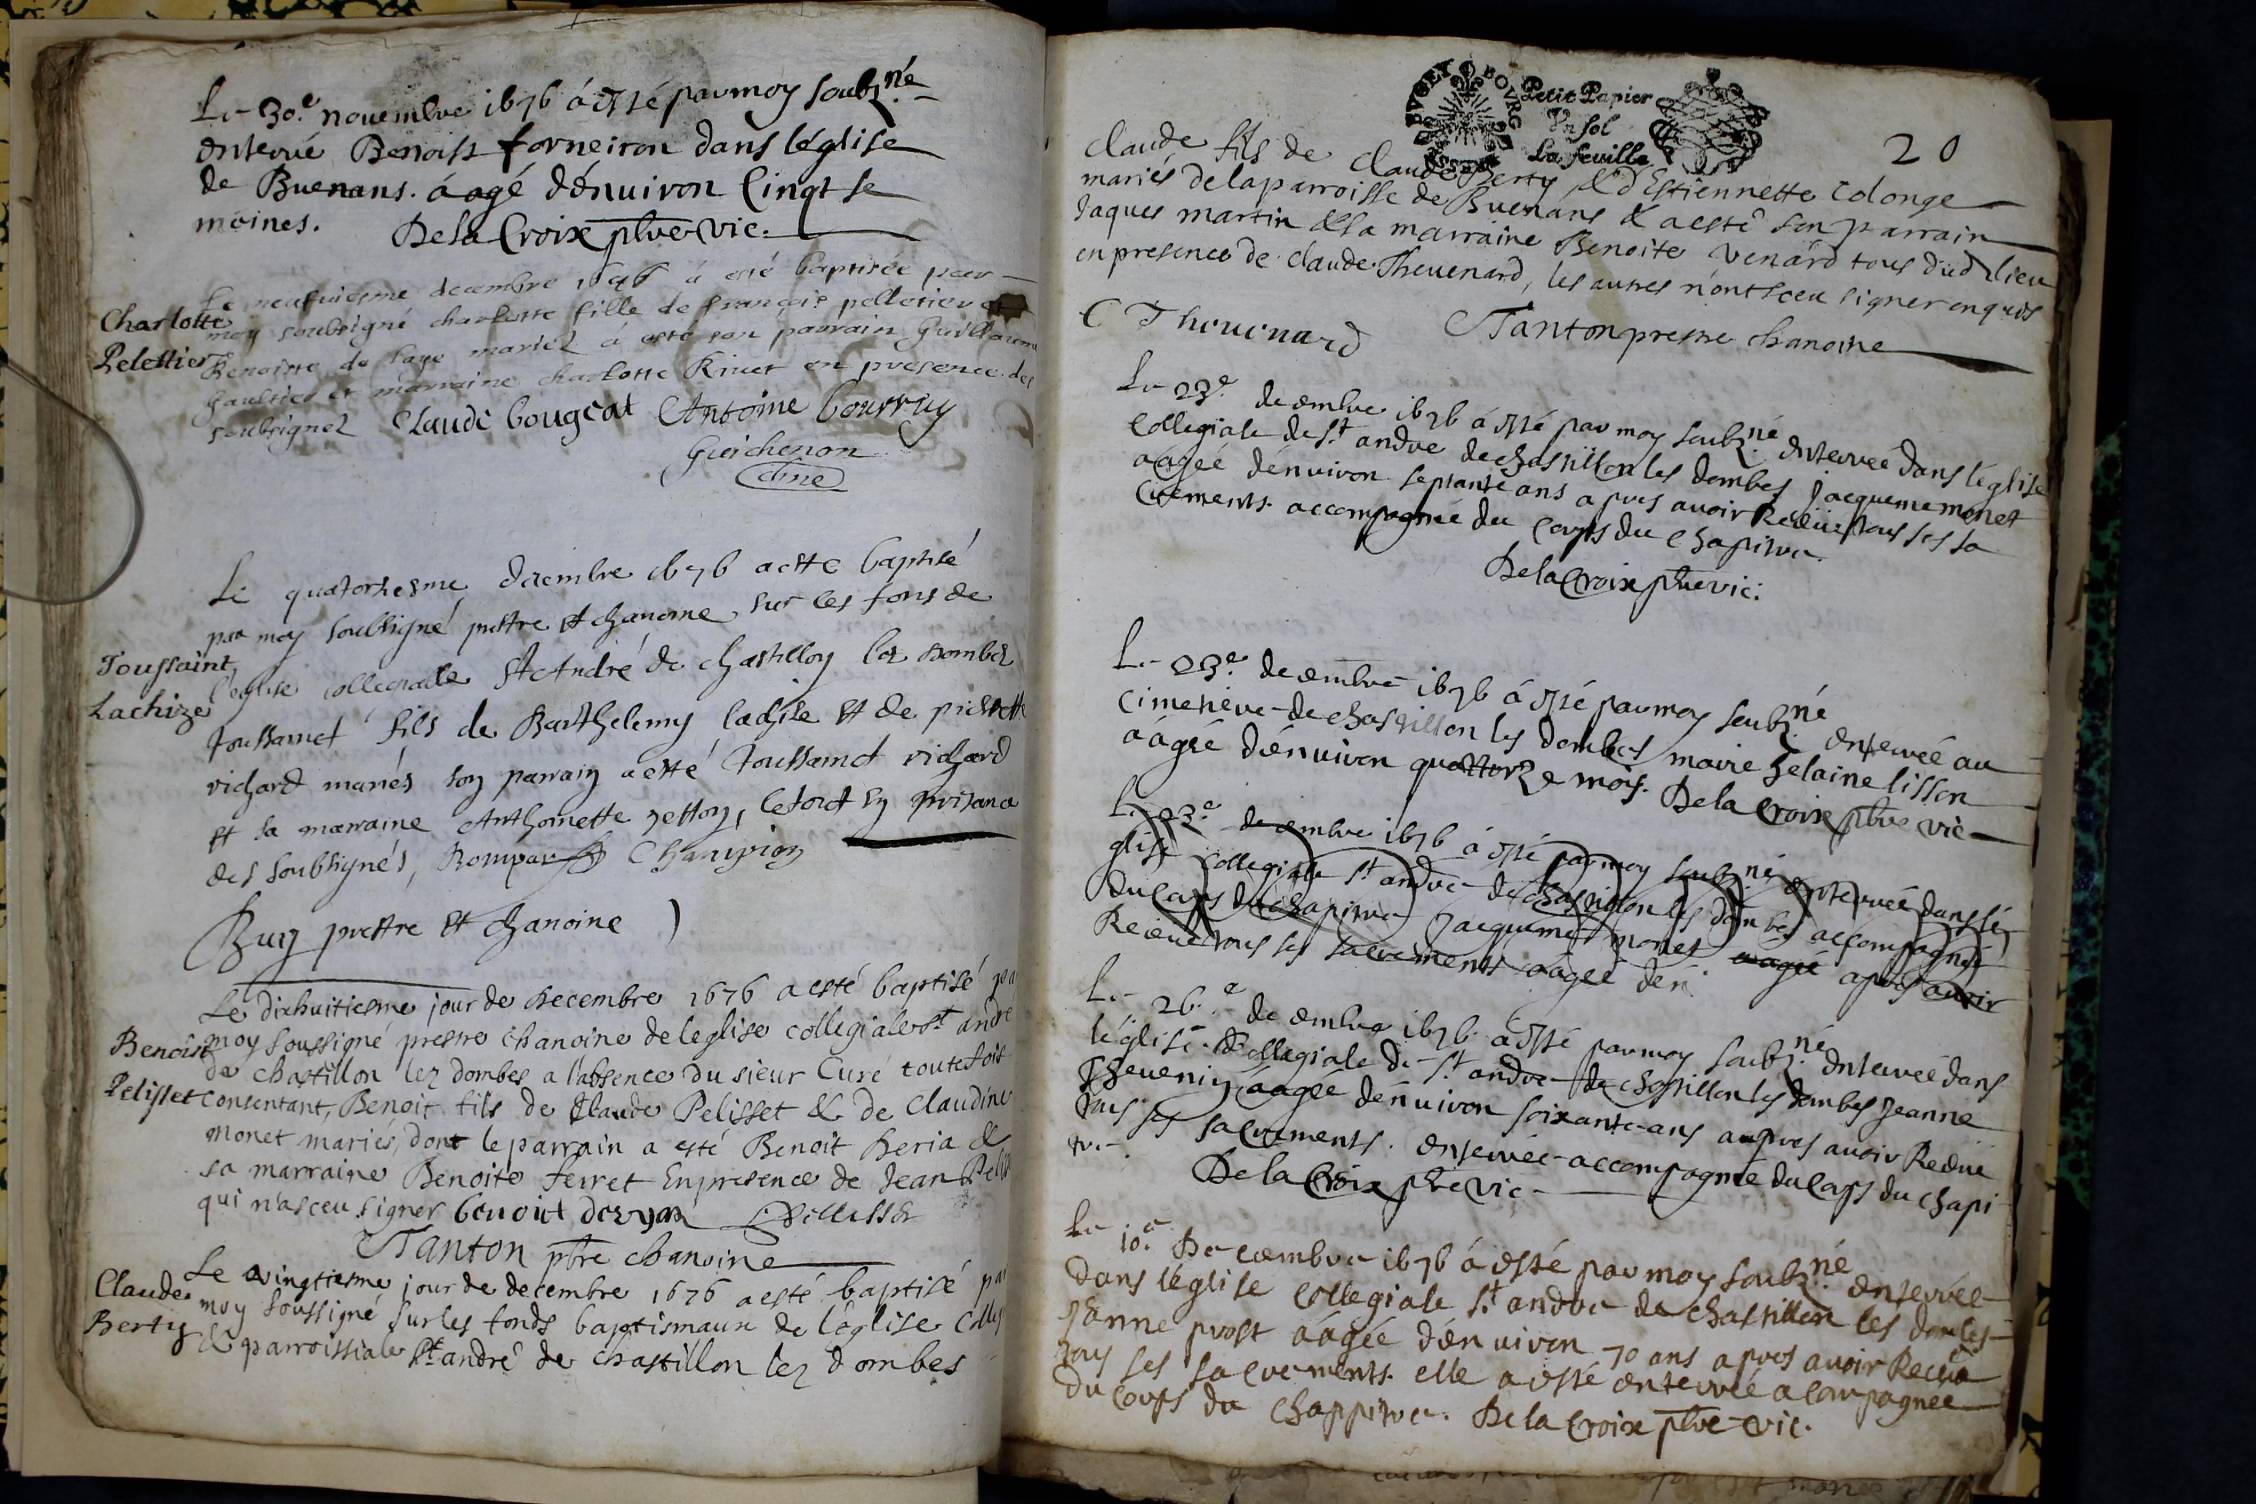 Le 30.e nouembre 1676 á esté par moy soubz.né
enterré Benoist forneiron dans léglise
de Buenans. áagé dénuiron Cinqt se
maines. De la Croix pbre vic.
Charlotte
Pelettier
Le neufuiesme decembre 1676 á esté baptisée par
moy soubsigné charlotte fille de françois pelletier et
Benoiste de laye mariéz á esté son parrain Guillaume
Gaultier et marraine charlotte Riuet en presence des
soubsignez Claude bougeat Antoine bourruy
Guichenon
curé
Toussaint
Lachize
Le quatorziesme decembre 1676 a esté baptisé
par moy soubsigné prestre et chanoine sur les fons de
l'eglise collegialle St André de chastillon les dombes
toussainct fils de Barthelemy lachise et de pierrette
richard mariés son parrain a esté toussainct richard
et sa marraine Anthoinette, le tout en presence
des soubsignés, Rompar Champion
Buy prestre et chanoine
Benoist
Pelisset
Le dixhuitiesme jour de decembre 1676 a esté baptisé par
moy soussigné prestre chanoine de leglise collegiale st andré
de chastillon lez dombes a l'absence du sieur Curé toutefois
consentant, Benoit fils de Claude Pelisset & de Claudine
monet mariés, dont le parrain a esté Benoit Heria &
sa marraine Benoite ferret En presence de Jean Pelis
qui n'a sceu signer benoit deryas Pellisset
Tanton pbre chanoine
Claude
Berty
Le vingtiesme jour de decembre 1676 a esté baptisé par
moy soussigné sur les fonds baptismaux de l'église Colleg
& parroissiale St andré de chastillon lez dombes
BVGEY BOVRG
BRESSE
Petit Papier
Vn sol
La feuille
20
Claude fils de Claude Berty & d'Estiennette Colonge
mariés de la parroisse de Buenans & a esté son parrain
Jaques martin & sa marraine Benoite Venard tous dud lieu
en presence de Claude Theuenard, les autres n'ont sceu signer enquis
C Theuenard Tanton prestre chanoine
Le 23.e decembre 1676 á esté par moy soubz.né enterreé dans léglise
Collegiale de St andre de chastillon les dombes Jacqueme monet
áagéé dénuiron septante ans apres auoir Receu tous ses sa
crements. accompagnée du Corps du chapitre
De la Croix pbre vic.
Le 23.e decembre 1676 á esté par moy soubz.né enterreé au
Cimetiere de chastillon les dombes marie helaine lisson
áagéé dénuiron quattorze mois. De la Croix pbre vic
Le 23.e decembre 1676 á esté par moy soubz.né enterreé dans lé
glise Collegiale St andre de chastillon les dombes accompagnée
du Corps du chapitre Jacqueme monet áagéé apres auoir
Receu tous ses sacrements áagéé dén
Le 26.e decembre 1676 á esté par moy soubz.né enterreé dans
l'église Collegiale de St andre de chastillon les dombes Jeanne
Theuenin áagéé dénuiron soixante ans apres auoir Receu
tous ses sacrements. enterrée accompagnée du Corps du chapi
tre. De la Croix pbre vic
Le 10.e Decembre 1676 á esté par moy soubz.né enterrée
dans léglise Collegiale St andre de chastillon les dombes
Jeanne prost áagéé dénuiron 70 ans apres auoir Receu
tous ses sacrements. elle a esté enterreé acompagnée
du Corps du Chappitre. De la Croix pbre vic.